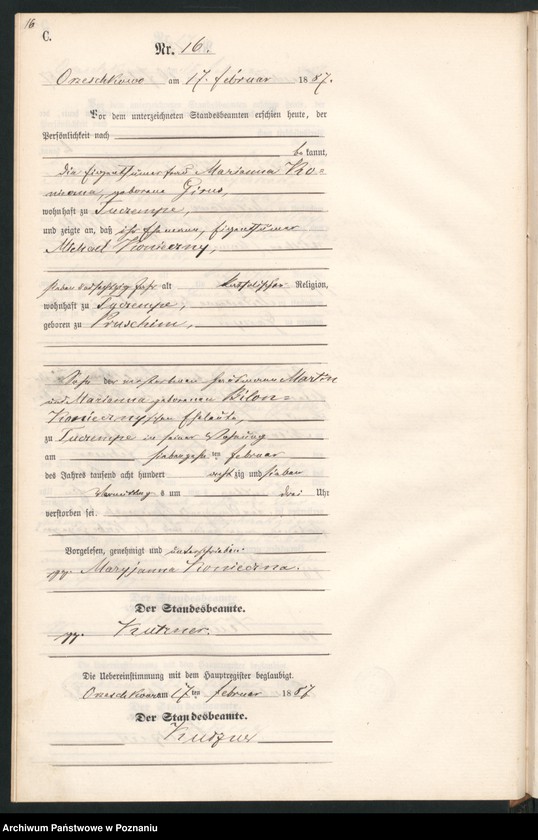 16
C.
Nr. 16.
Orzeschkowo am 17. februar 1887.
Vor dem unterzeichneten Standesbeamten erschien heute, der
Persönlichkeit nach
bekannt,
die Eigenthümerfrau Marianna Ko-
nieczna, geborene
wohnhaft zu
und zeigte an, daß ihr Ehemann, Eigenthümer
Michael Konieczny,
sieben und sechzig Jahr alt katholischer Religion,
wohnhaft zu
geboren zu Pruschim,
Sohn der verstorbenen Martin
und Marianna geborenen
Konieczny'schen Eheleute,
zu in seiner Wohnung
am siebenzehnten februar
des Jahres tausend acht hundert achtzig und sieben
Vormittags um drei Uhr
verstorben sei.
Vorgelesen, genehmigt und unterschrieben.
gez. Maryjanna Konieczna.
Der Standesbeamte.
gez. Kutzner.
Die Uebereinstimmung mit dem Hauptregister beglaubigt.
Orzeschkowo am 17ten februar 1887
Der Standesbeamte.
Kutzner
Archiwum Państwowe w Poznaniu